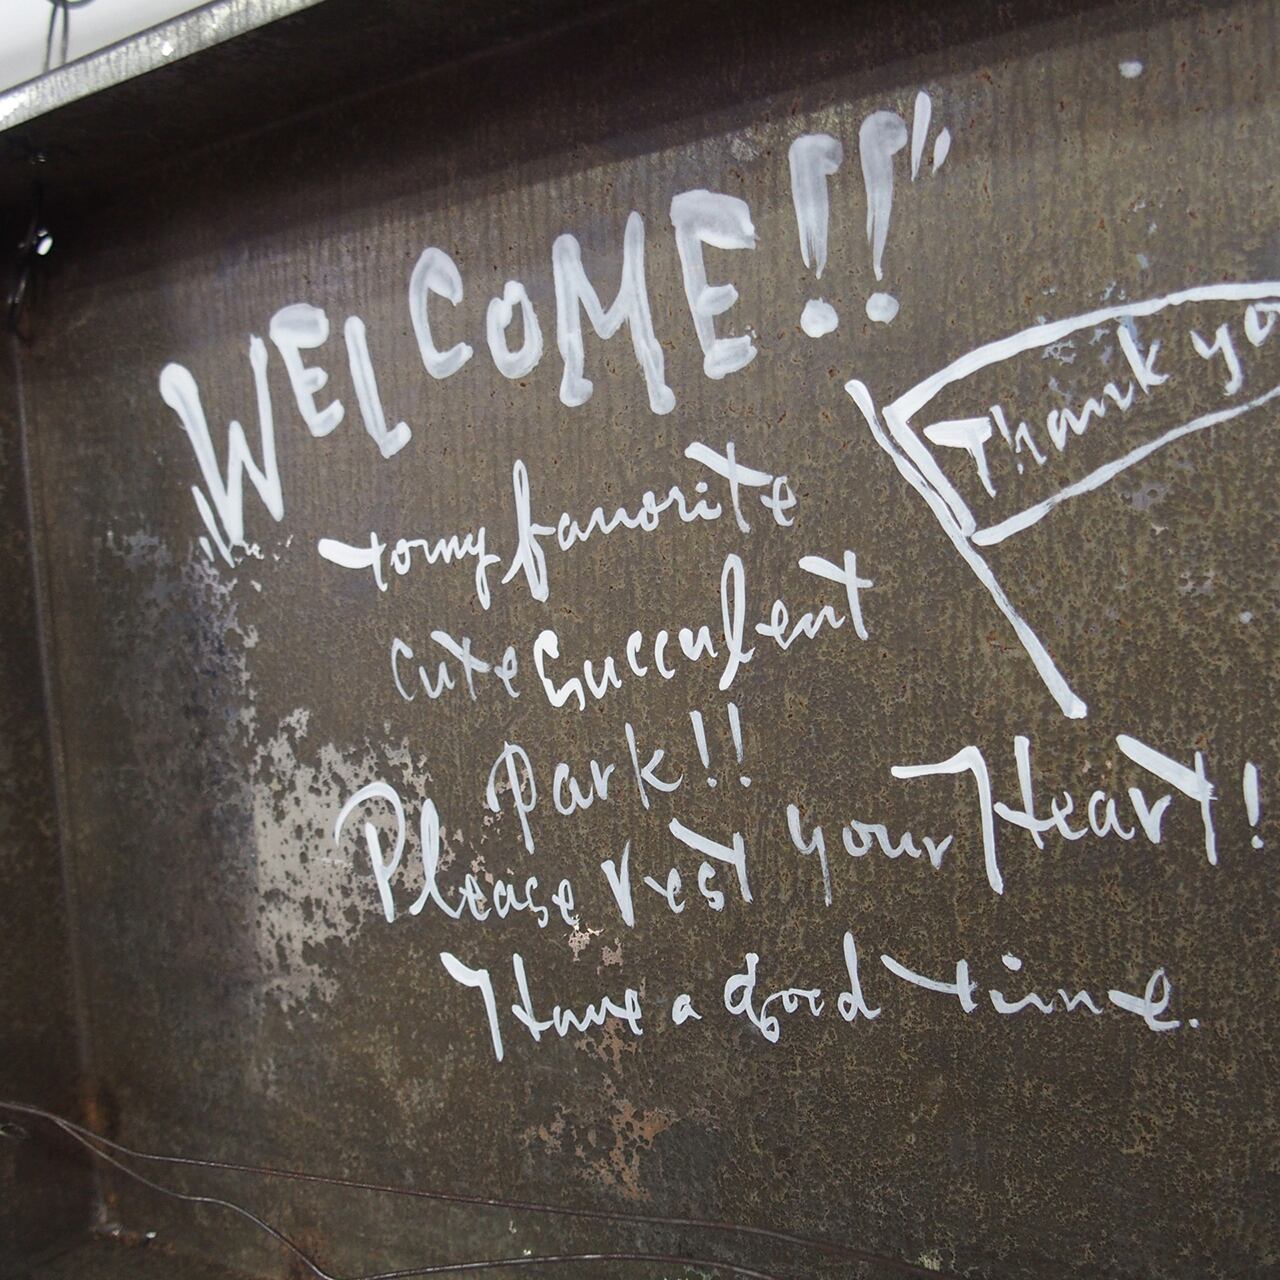 WELCOME!!
to my favorite
cute succulent
park!!
Please rest your Heart!
Have a good time.
Thank yo